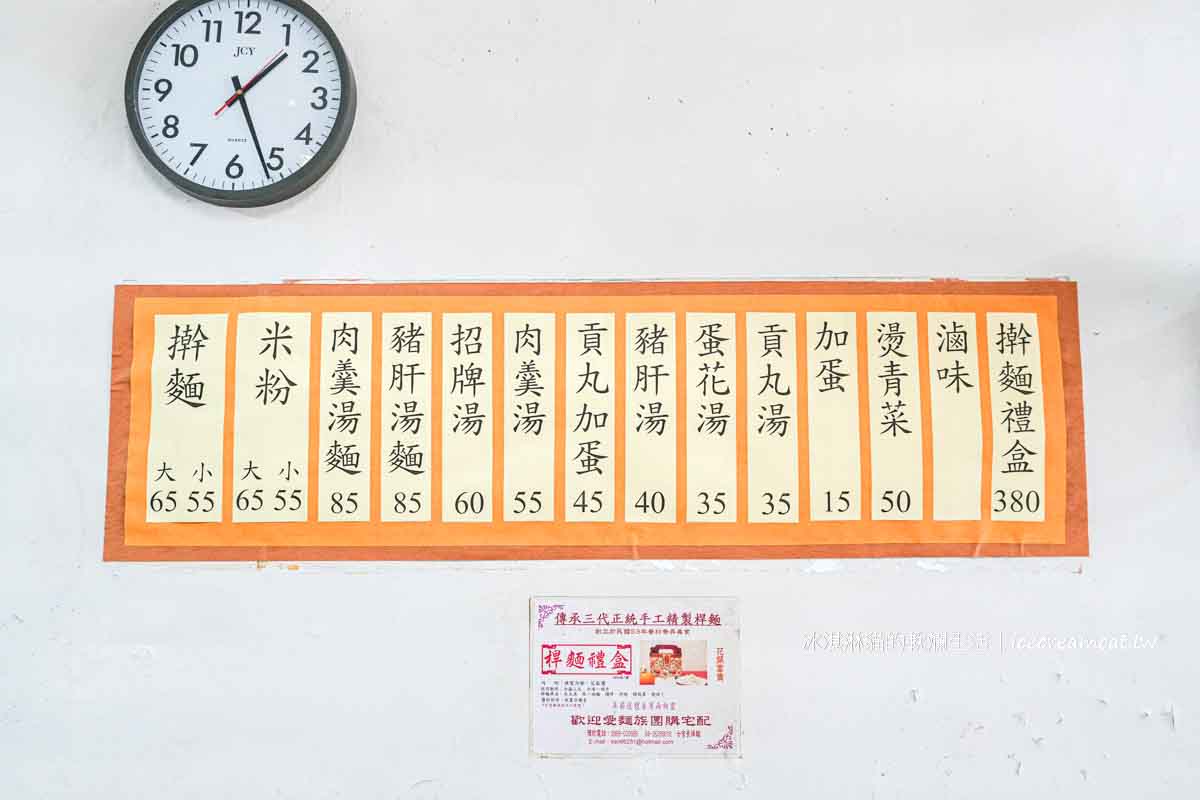 12
1
2
3
4
5
6
7
8
9
10
11
JCY
QUARTZ
擀麵
大 小
65 55
米粉
大 小
65 55
肉羹湯麵
85
豬肝湯麵
85
招牌湯
60
肉羹湯
55
貢丸加蛋
45
豬肝湯
40
蛋花湯
35
貢丸湯
35
加蛋
15
燙青菜
50
滷味
擀麵禮盒
380
傳承三代正統手工精製桿麵
桿麵禮盒
歡迎愛麵族團購宅配
冰淇淋貓的 生活 | icecreamcat.tw